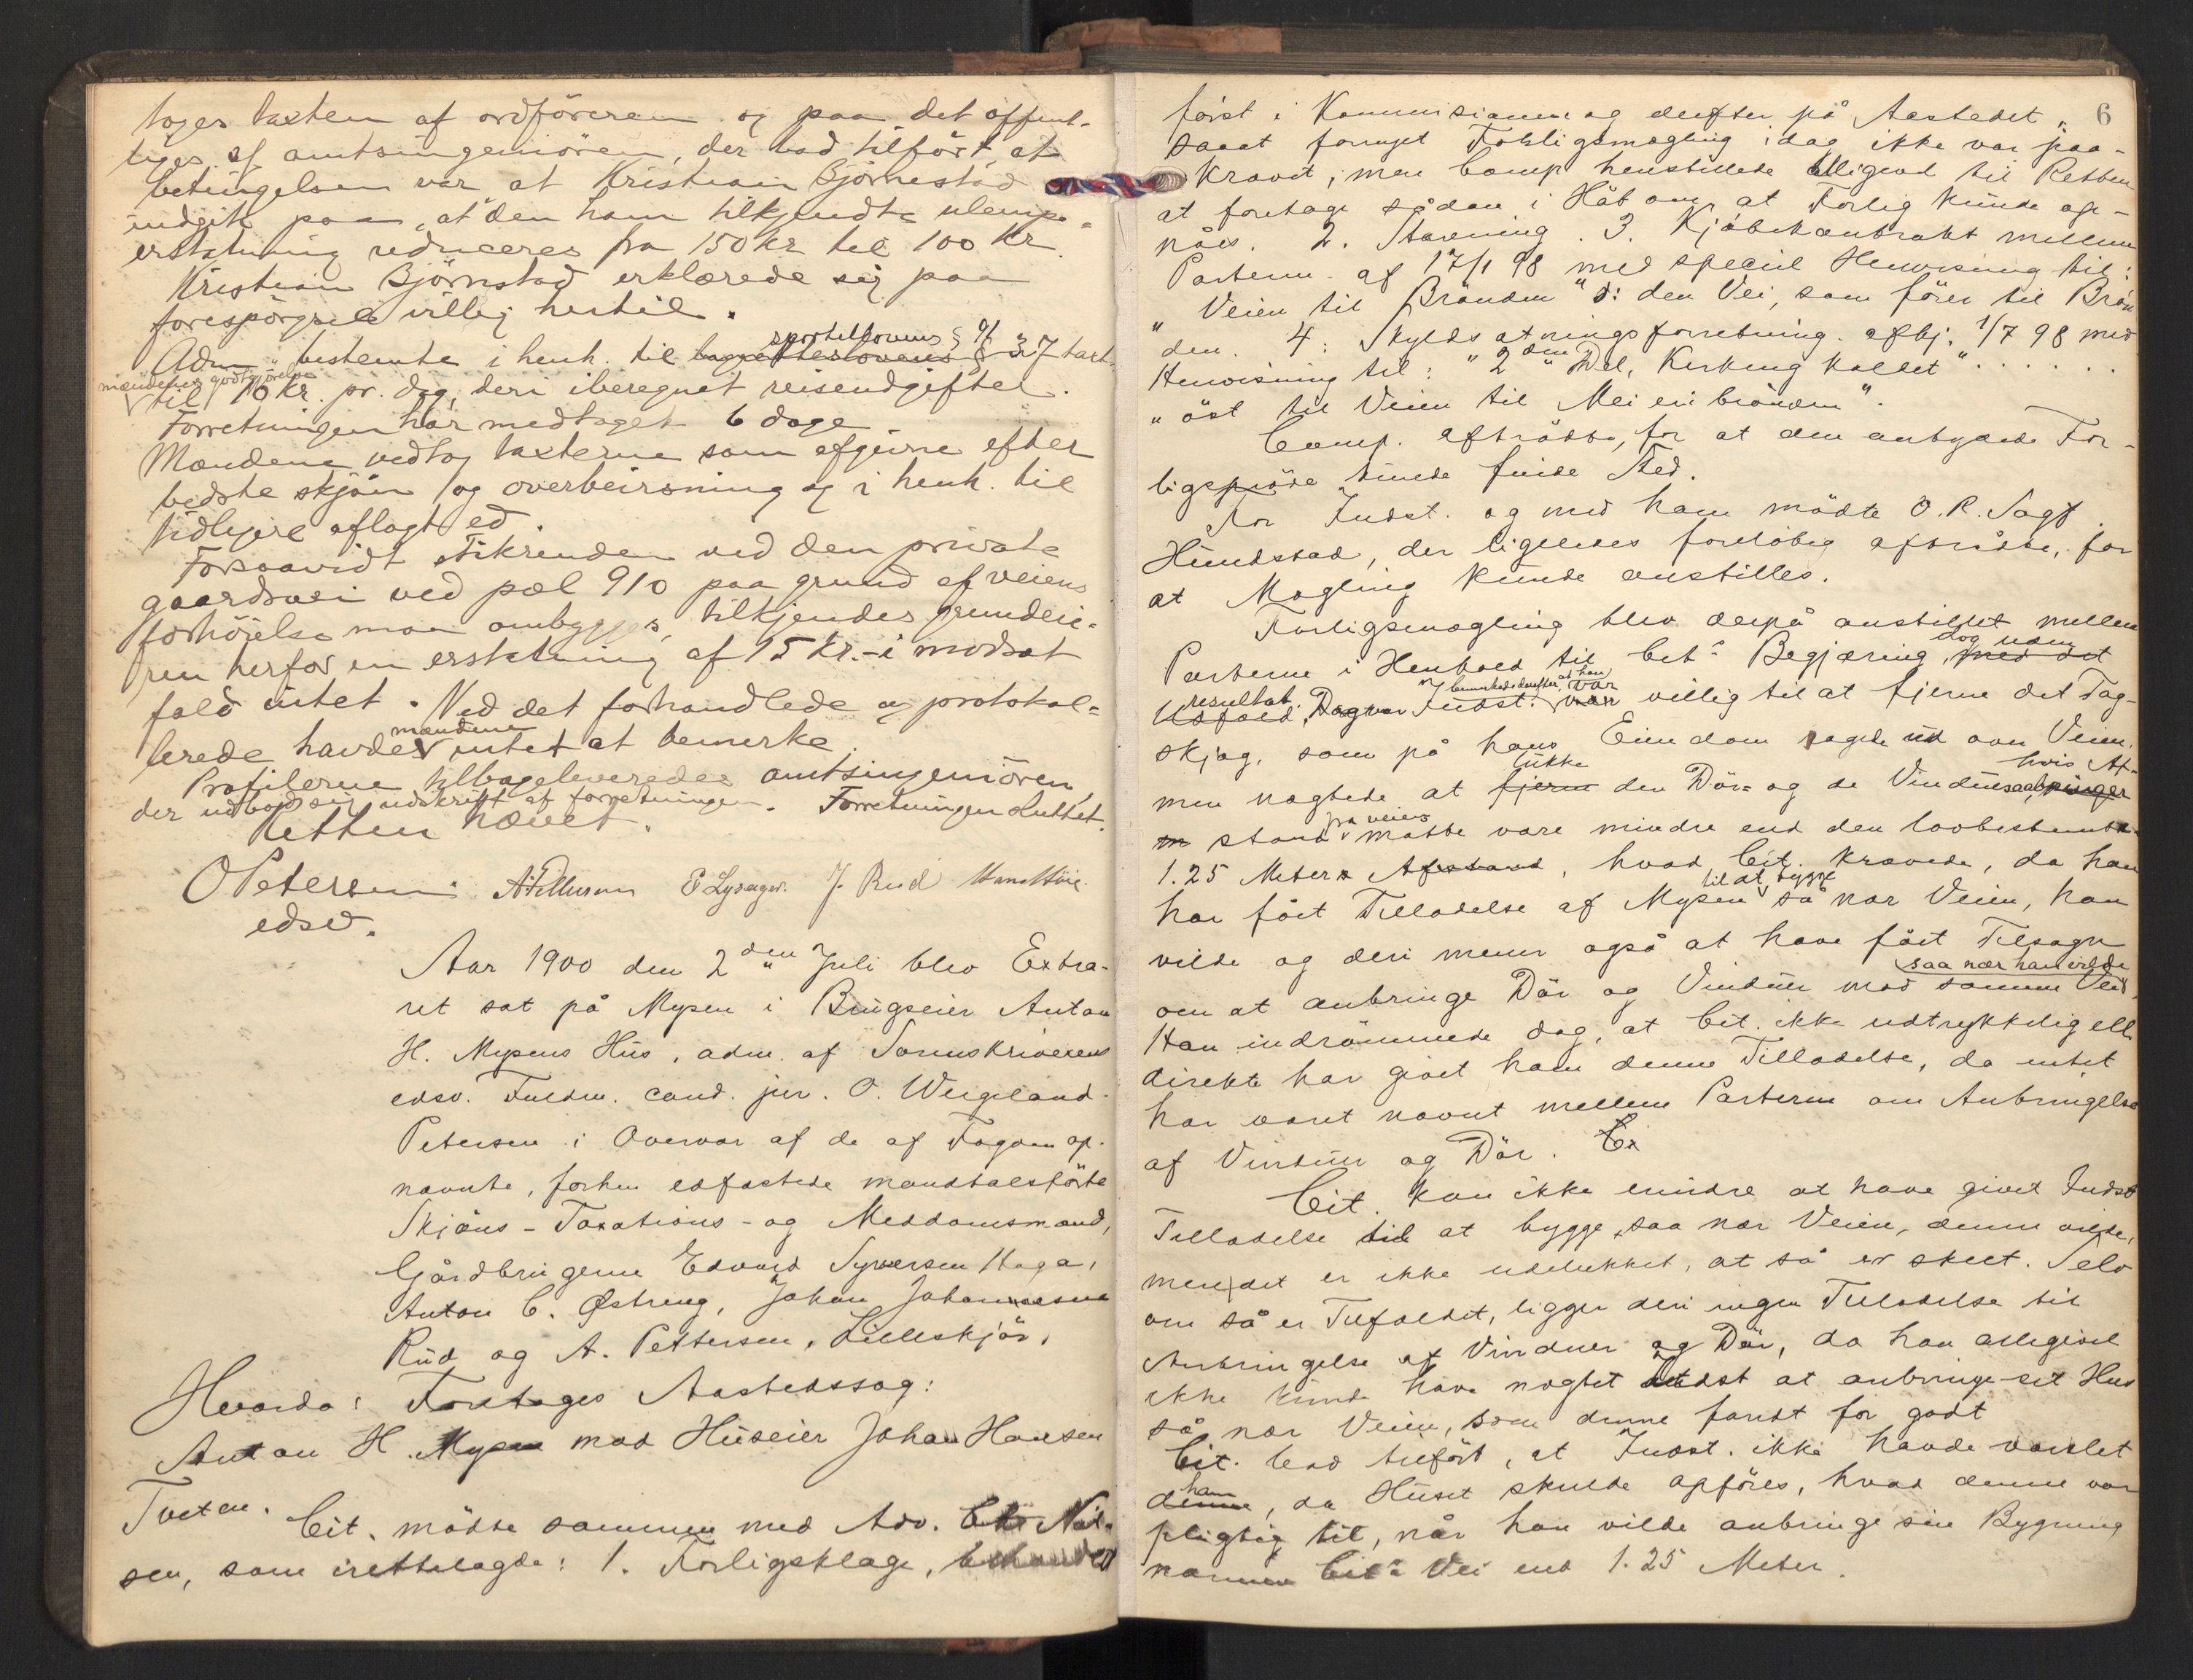 toges taxten af ordføreren og paa det offent-
liges af amtsingeniøren, der bad tilført, at
betingelsen var at Kristian Bjørnestad
indgik paa, at den ham tilkjendte ulempe-
erstatning reduceres fra 150 kr til 100 kr.
Kristian Bjørnstad erklærede sig paa
forespørgsel villig hertil.
sportellovens § 91
Adm. bestemte i henh. til lagrettelovens § 37 taxt-
mændenes godtgjørelse
til 10 kr. pr. dag, deri iberegnet reiseudgifter.
Forretningen har medtaget 6 dage
Mændene vedtog taxterne som afgivne efter
bedste skjøn og overbeivsning og i henh. til
tidligere aflagt ed.
Forsaavidt stikrenden ved den private
gaardsvei ved pæl 910 paa grund af veiens
forhøielse maa ombygges, tilkjendes grundeie-
ren herfor en erstatning af 15 kr. - i modsat
fald intet. Ved det forhandlede og protokol-
mændene
lerede havdes intet at bemerke.
Profilerne tilbageleveredes amtsingeniøren,
der udbad sig udskrift af forretningen. Forretningen sluttet.
Retten hævet.
O Petersen A Pettersen E Lysager J. Rud
edsv.
Aar 1900 den 2den Juli blev Extra-
ret sat på Mysen i Brugseier Anton
H. Mysens Hus, adm. af Sorenskriverens
edsv. Fuldm. cand. jur. O. Weigeland-
Petersen i Overvær af de af Fogden op-
nævnte, forhen edfæstede mandtalsførte
Skjøns- Taxations- og Meddomsmænd,
Gårdbrugerne Edvard Syversen Haga,
Anton C. Østreng, Johan Johannesen
Rud og A. Pettersen, Lilleskjør.
Hvorda: Foretages Aastedssag:
Anton H. Mysen mod Huseier Johan Hansen
Tveten.
Cit. mødte sammen med Adv. Chr Niel-
sen, som irettelagde: 1. Forligsklage, behandlet
6
først i Kommisionen og derefter på Aastedet,
saaat fornyet Forligsmægling idag ikke var paa-
krævet; men Comp henstillede alligevel til Retten
at foretage sådan i Håb om, at Forlig kunde op-
nåes. 2. Stævning. 3. Kjøbekontrakt mellem
Parterne af 17/1 98 med speciel Henvisning til:
" Veien til Brønden " ɔ: den Vei, som fører til Brøn
" den. 4. Skyldsætningsforretning. afhj. 1/7 98 med
Henvisning til: " 2den Del, Kirkeng kaldet " . . . . . .
" øst til Veien til Meieribrønden ".
Comp. aftrådte, for at den antydede For-
ligsprøve kunde finde Sted.
For Indst. og med ham mødte O. R. Sagf.
Hundstad, der ligeledes foreløbig aftrådte, for
at Mægling kunde anstilles.
Forligsmægling blev derpå anstillet mellem
dog uden
Parterne i Henhold til Cits Begjæring, med det
resultat. bemerkede derefter, at han var
Udfald, Dog var Indst. var villig til at fjerne det Tag-
skjæg, som på hans Eiendom ragede ud over Veien,
lukke hvis Af-
men nægtede at fjerne den Dør og de Vinduesaabninger
på veien
m stand måtte være mindre end den lovbestemte
1.25 Meters Afstand, hvad Cit. krævede, da han
til at bygge
har fået Tilladelse af Mysen så nær Veien, han
vilde og deri mener også at have fået Tilsagn
saa nær han vilde
om at anbringe Dør og Vinduer mod samme Vei.
Han indrømmede dog, at Cit. ikke udtrykkelig ell.
direkte har givet ham denne Tilladelse, da intet
har været nævnt mellem Parterne om Anbringelse
af Vinduer og Dør.
Cit. kan ikke erindre at have givet Indst
Tilladelse til at bygge saa nær Veien, denne vilde,
men det er ikke udelukket, at så er skeet. Selv
om så er Tilfældet, ligger deri ingen Tilladelse til
Anbringelse af Vinduer og Dør, da han alligevel
ikke kunde have nægtet Indst at anbringe sit Hus
så nær Veien, som denne fandt for godt
Cit. bad tilført, at Indst. ikke havde varslet
ham
denne, da Huset skulde opføres, hvad denne var
pligtig til, når han vilde anbringe sin Bygning
nærmere Cits Vei end 1.25 Meter.